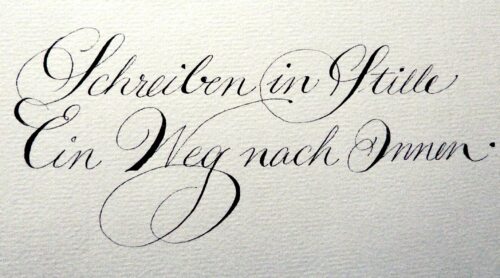 Schreiben in Stille
Ein Weg nach Innen.